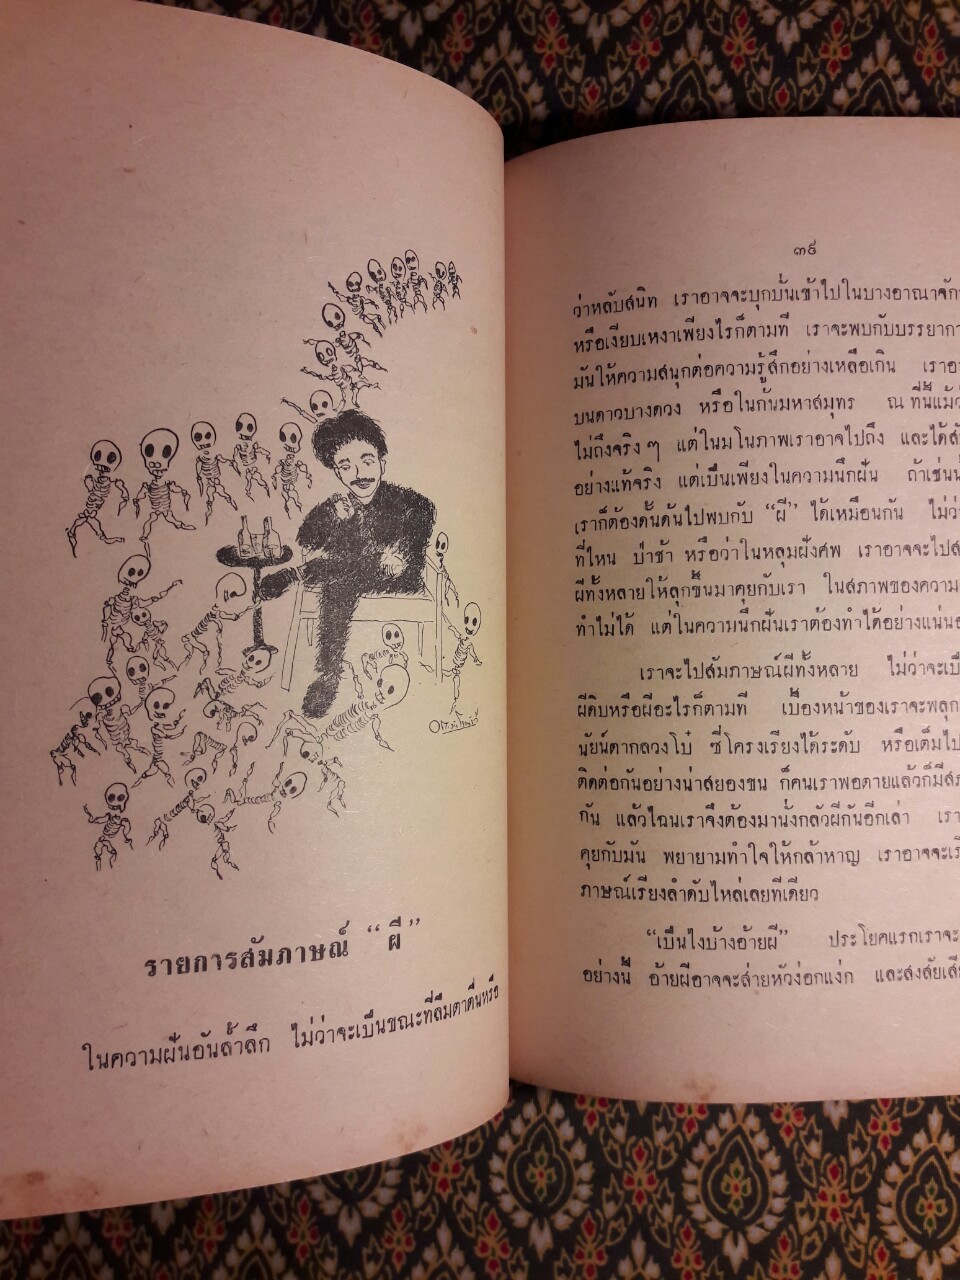 รายการสัมภาษณ์ “ผี”
ในความฝันอันล้ำลึก ไม่ว่าจะเป็นขณะที่ลืมตาตื่นหรือ
๓๙
ว่าหลับสนิท เราอาจจะบุกบั่นเข้าไปในบางอาณาจัก
หรือเงียบเหงาเพียงไรก็ตามที เราจะพบกับบรรยากา
มันให้ความสนุกต่อความรู้สึกอย่างเหลือเกิน เราอา
บนดาวบางดวง หรือในก้นมหาสมุทร ณ ที่นี้แม้ว
ไม่ถึงจริง ๆ แต่ในมโนภาพเราอาจไปถึง และได้สั
อย่างแท้จริง แต่เป็นเพียงในความนึกฝัน ถ้าเช่นน
เราก็ต้องดั้นด้นไปพบกับ “ผี” ได้เหมือนกัน ไม่ว่
ที่ไหน ป่าช้า หรือว่าในหลุมฝังศพ เราอาจจะไปส
ผีทั้งหลายให้ลุกขึ้นมาคุยกับเรา ในสภาพของความ
ทำไม่ได้ แต่ในความนึกฝันเราต้องทำได้อย่างแน่นอ
เราจะไปสัมภาษณ์ผีทั้งหลาย ไม่ว่าจะเป็
ผีดิบหรือผีอะไรก็ตามที เบื้องหน้าของเราจะพลุก
นัยน์ตากลวงโบ๋ ซี่โครงเรียงได้ระดับ หรือเต็มไป
ติดต่อกันอย่างน่าสยองขน ก็คนเราพอตายแล้วก็มีสภ
กัน แล้วไฉนเราจึงต้องมานั่งกลัวผีกันอีกเล่า เรา
คุยกับมัน พยายามทำใจให้กล้าหาญ เราอาจจะเร
ภาษณ์เรียงลำดับไหล่เลยทีเดียว
“เป็นไงบ้างอ้ายผี” ประโยคแรกเราจะ
อย่างนี้ อ้ายผีอาจจะส่ายหัวง่อกแง่ก และสงสัยเสี